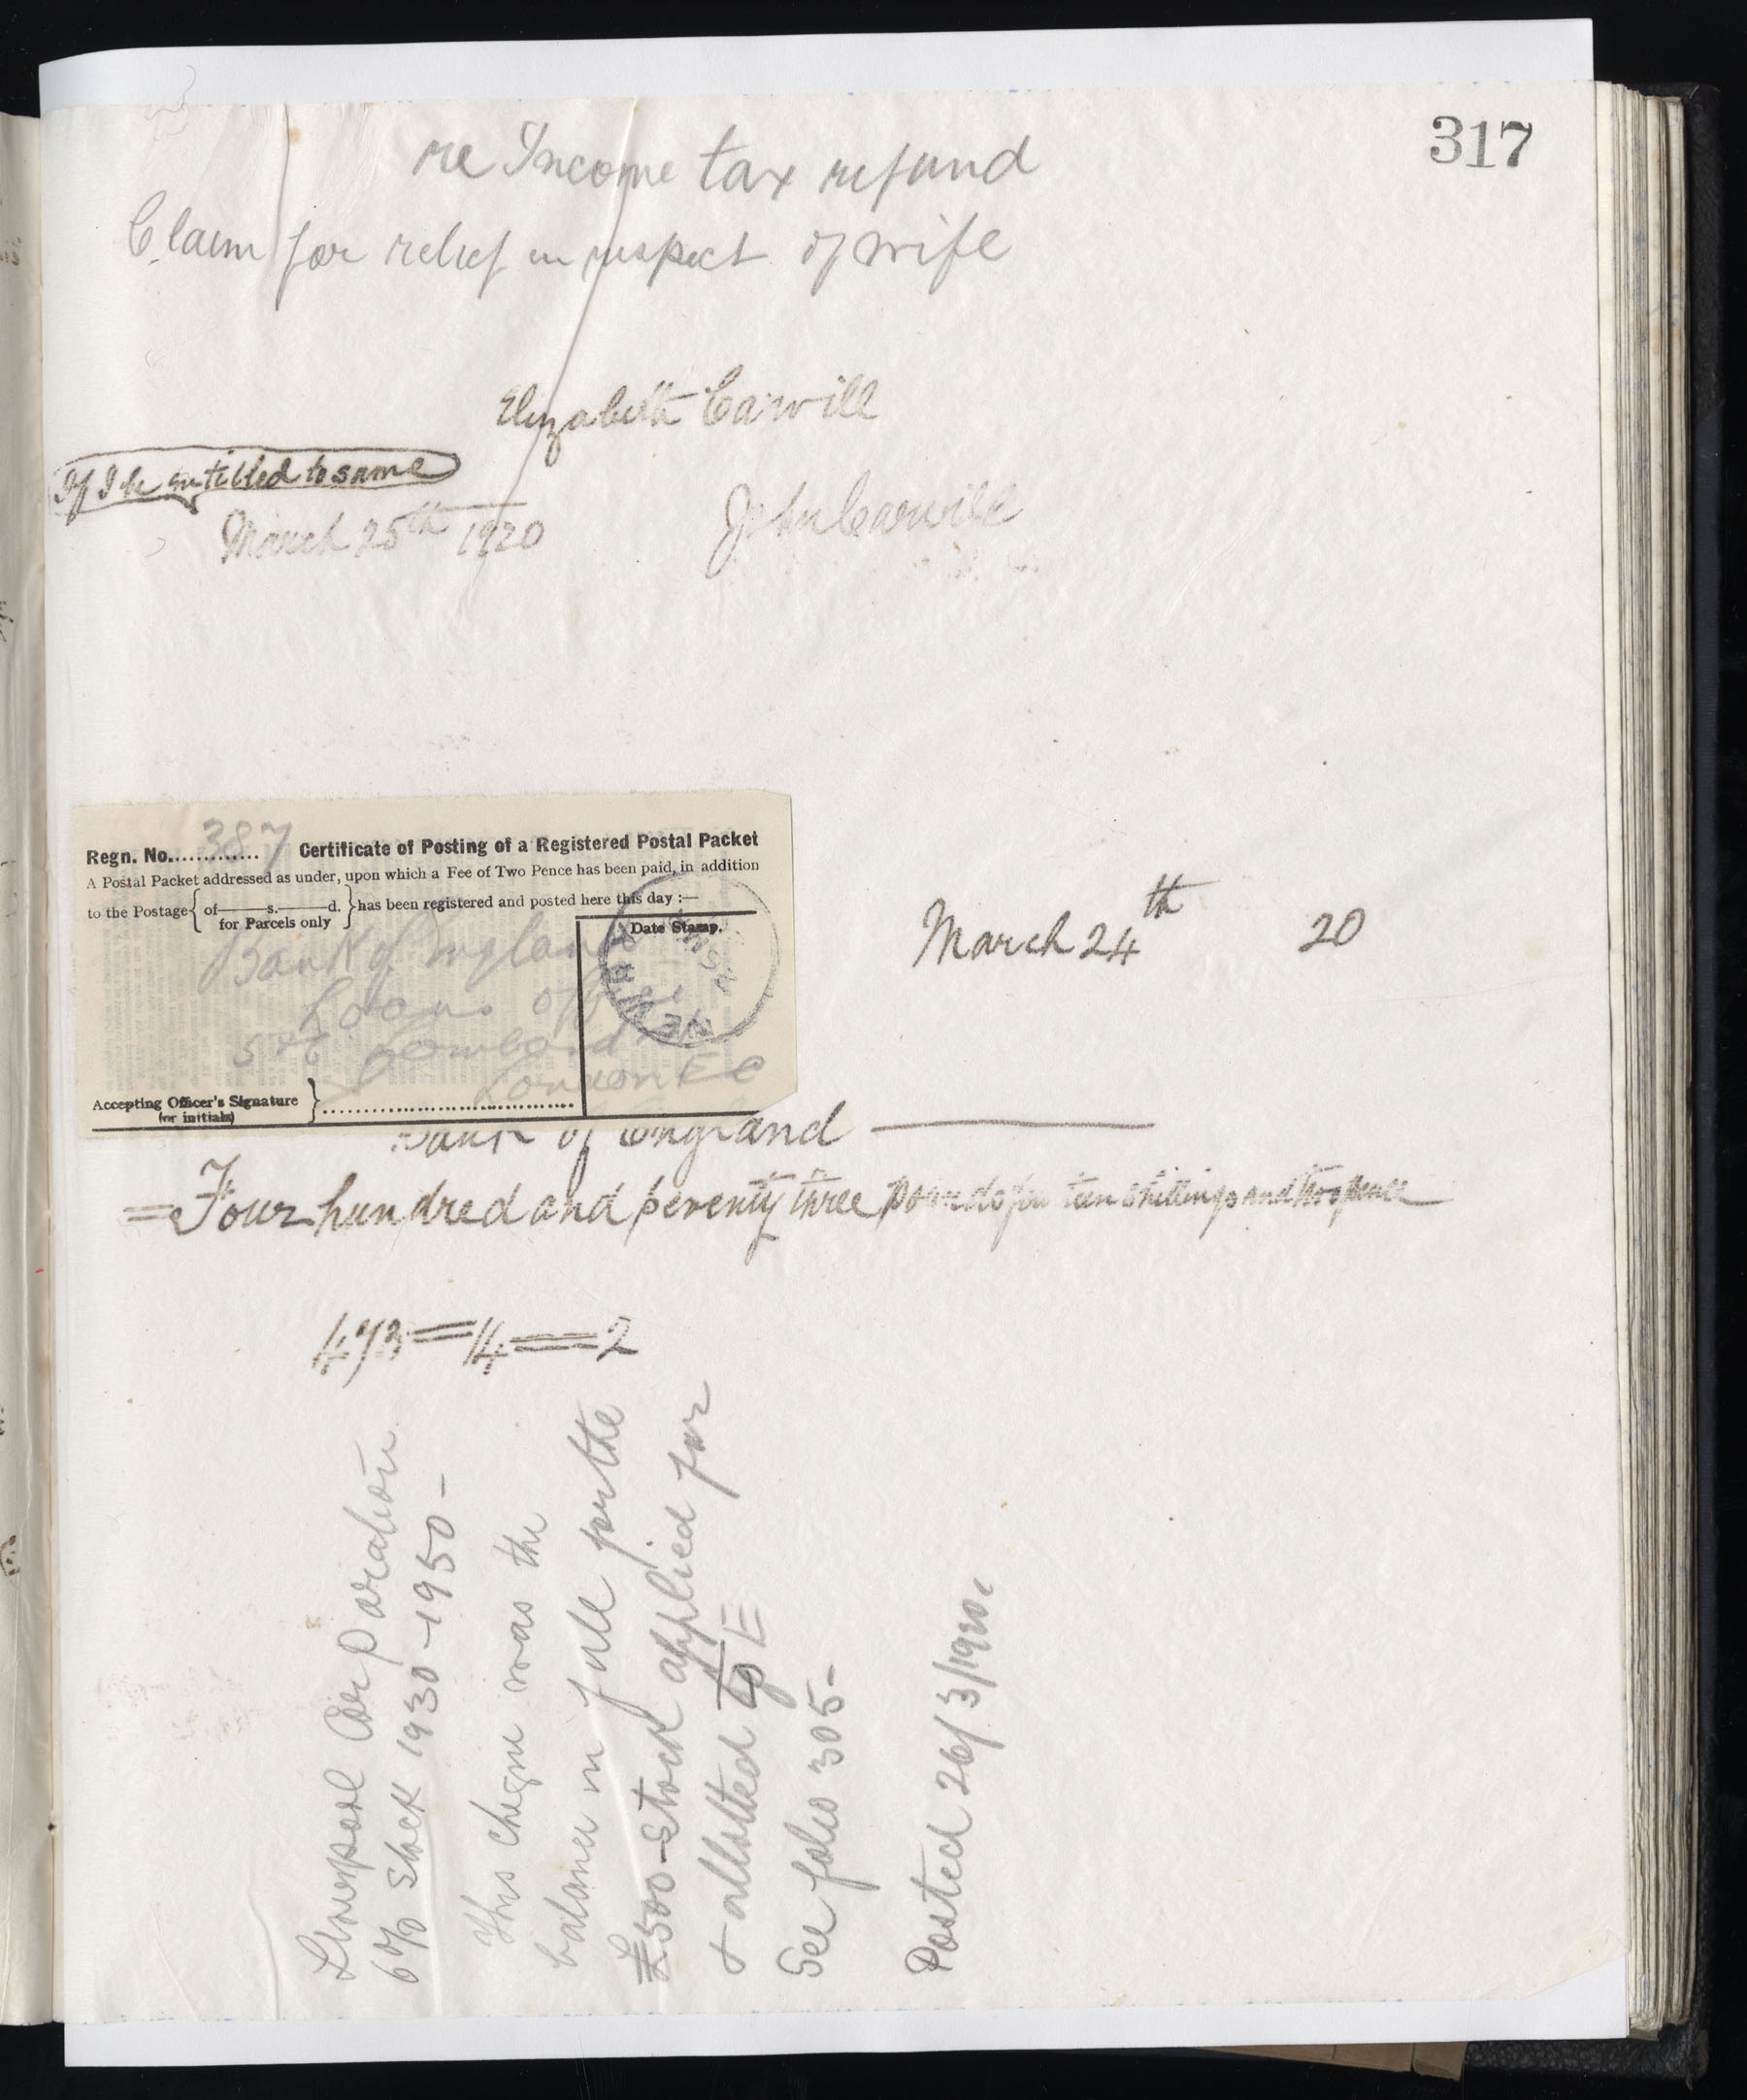 317
re Income tax refund
Claim for relief in respect of wife
Elizabeth Carvill
If I be entitled to same
March 25th 1920
John Carvill
Regn. No. 387 Certificate of Posting of a Registered Postal Packet
A Postal Packet addressed as under, upon which a Fee of Two Pence has been paid, in addition
to the Postage { of——s.——d. } has been registered and posted here this day :—
for Parcels only
Date Stamp.
Bank of England
Loans Office
5 & 6 Lombard
London EC
Accepting Officer's Signature
(or initials)
March 24th 20
Bank of England
= Four hundred and seventy three pounds fourteen shillings and two pence
473=14=2
Liverpool Corporation
6% Stock 1930-1950-
This cheque was the
balance in full for the
£500-Stock applied for
& allotted to E
See folio 305-
Posted 26/3/1920.